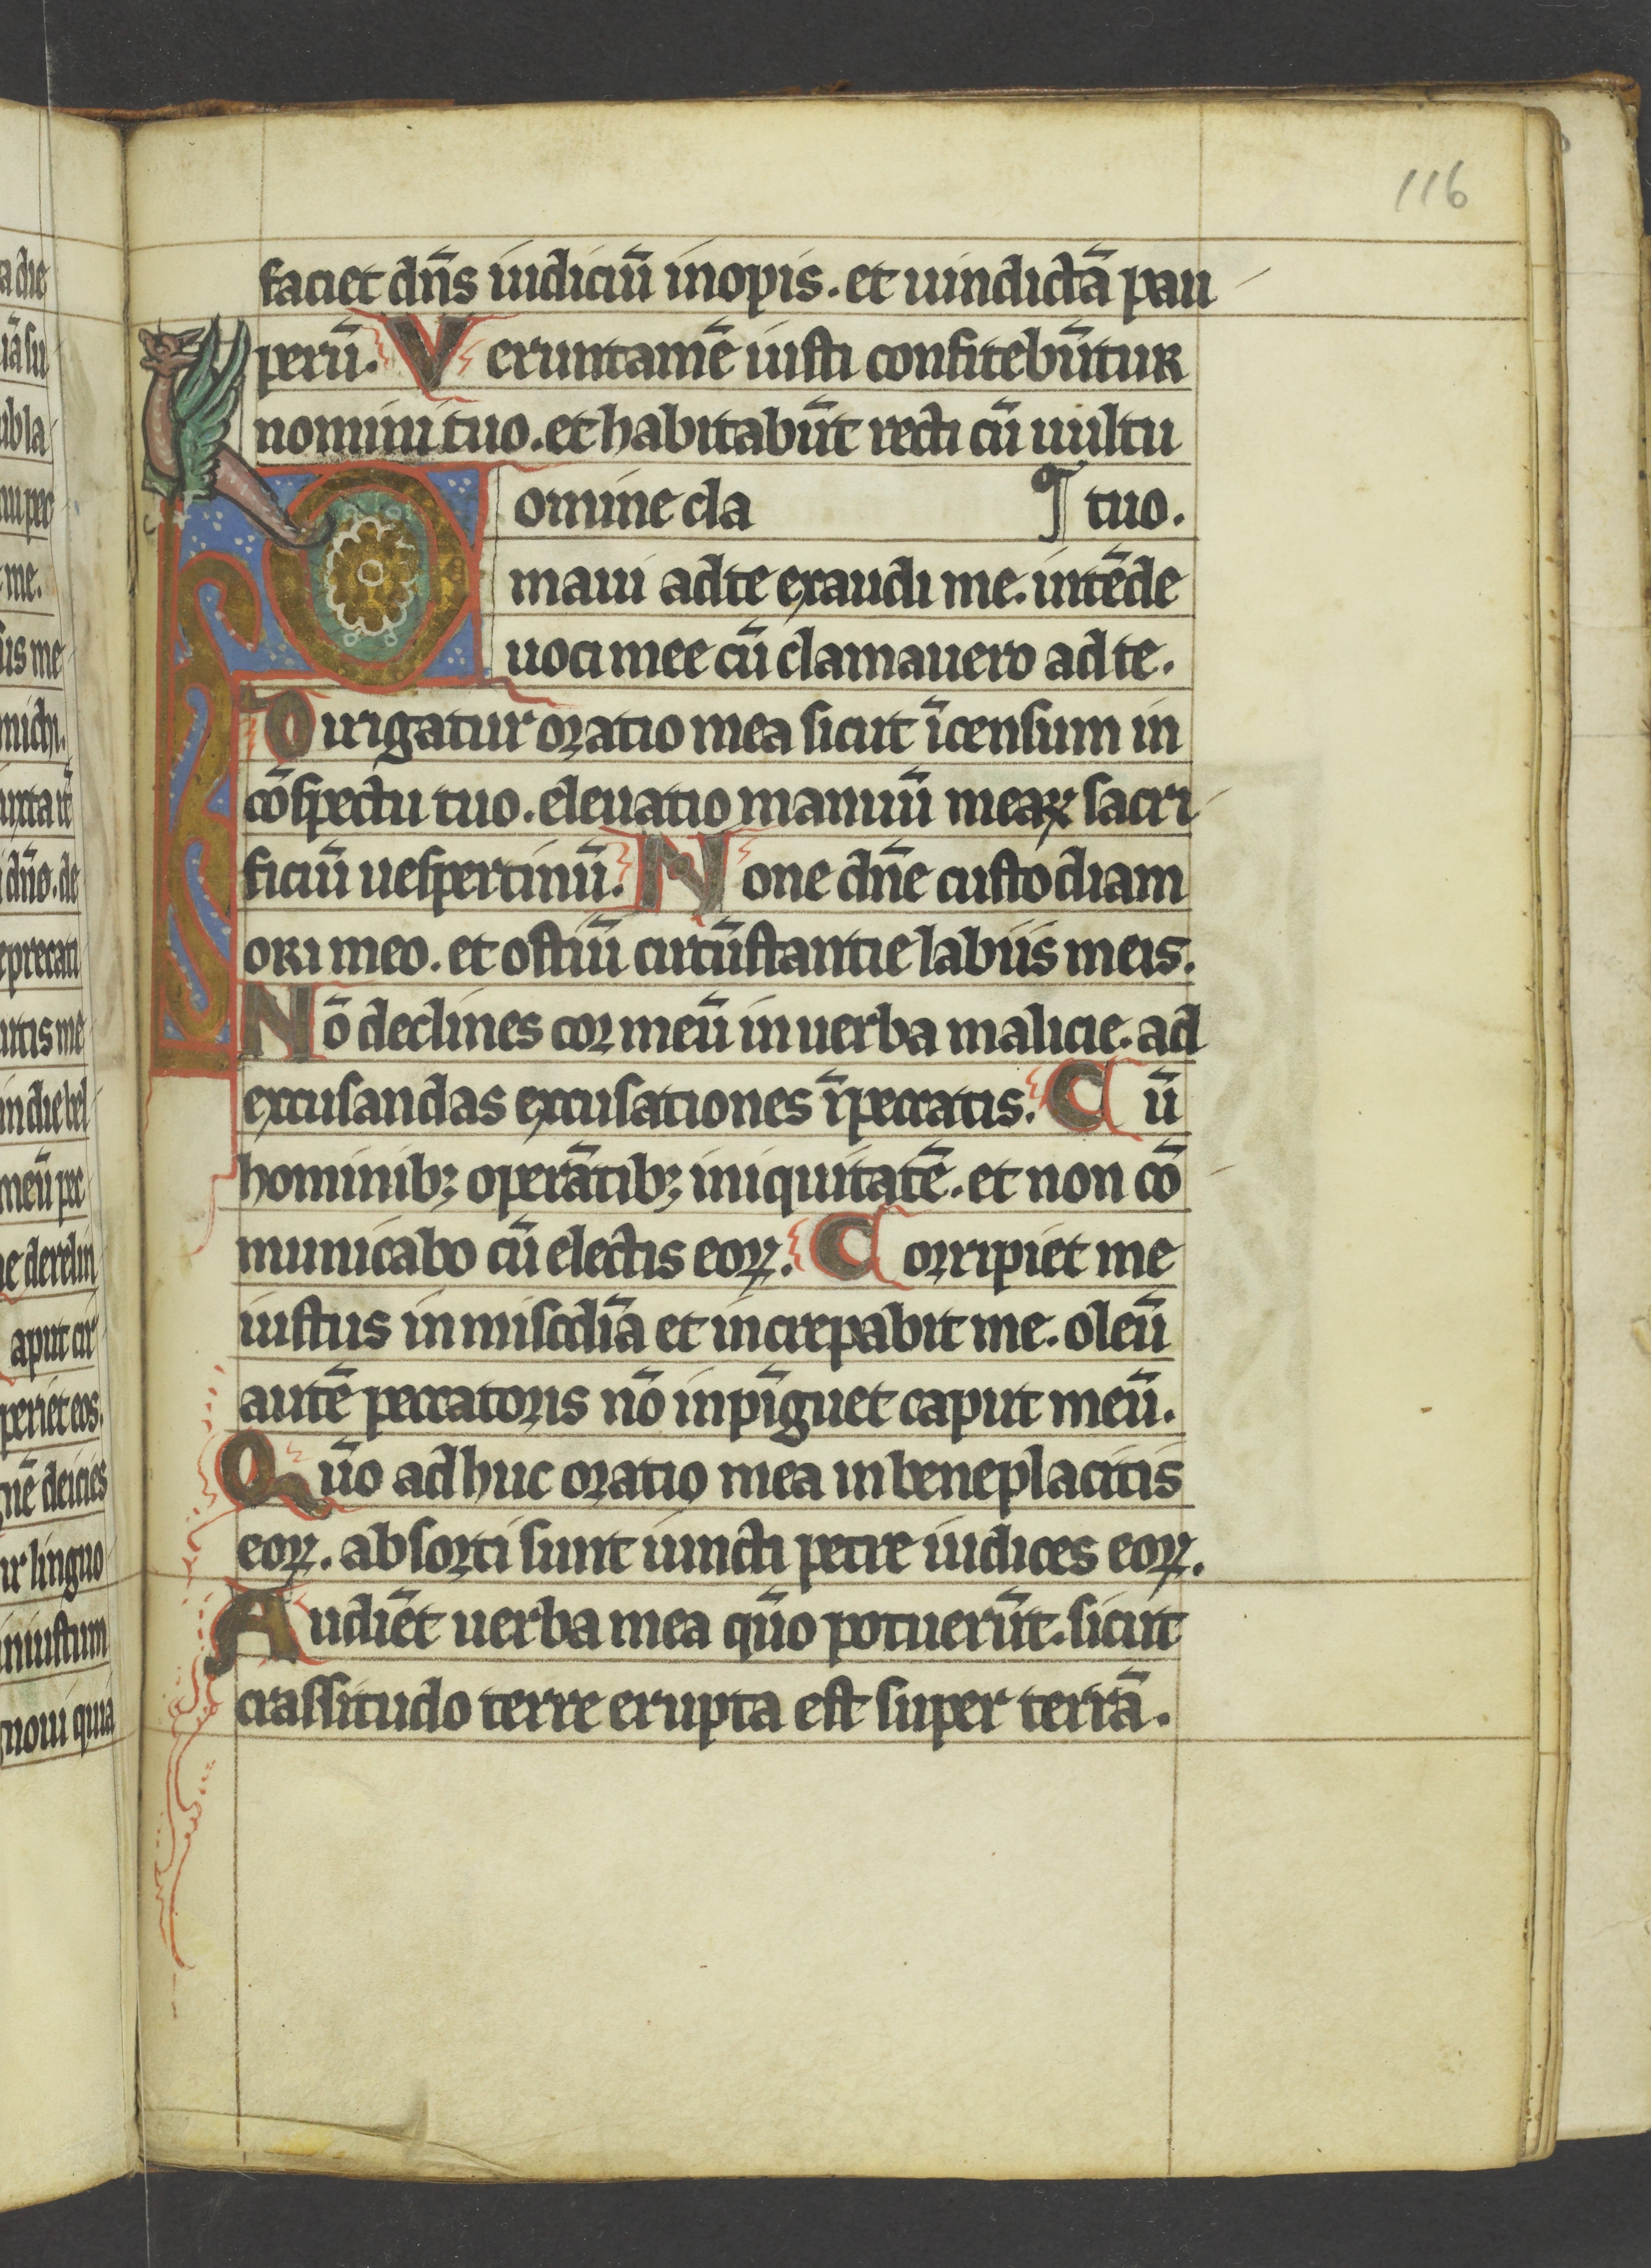 116
faciet dn̄s iudiciū inopis. et uindictā pau
perū. Veruntamē iusti confitebūtur
nomini tuo. et habitabūt recti cū uultu
¶ tuo.
Domine cla
maui ad te exaudi me. intēde
uoci mee cū clamauero ad te.
Dirigatur oratio mea sicut īcensum in
cōspectu tuo. eleuatio manuū meaꝝ sacri
ficiū uespertinū. None dn̄e custodiam
ori meo. et ostiū circūstantie labiis meis.
Nō declines cor meū in uerba malicie. ad
excusandas excusationes ī peccatis. Cū
hominibꝫ operātibꝫ iniquitatē. et non cō
municabo cū electis eoꝝ. Corripiet me
iustus in miscdiā et increpabit me. oleū
autē peccatoris nō inpīguet caput meū.
Qūo adhuc oratio mea in beneplacitis
eoꝝ. absorti sunt iuncti petre iudices eoꝝ.
Audiēt uerba mea qūo potuerūt. sicut
crassitudo terre erupta est super terrā.